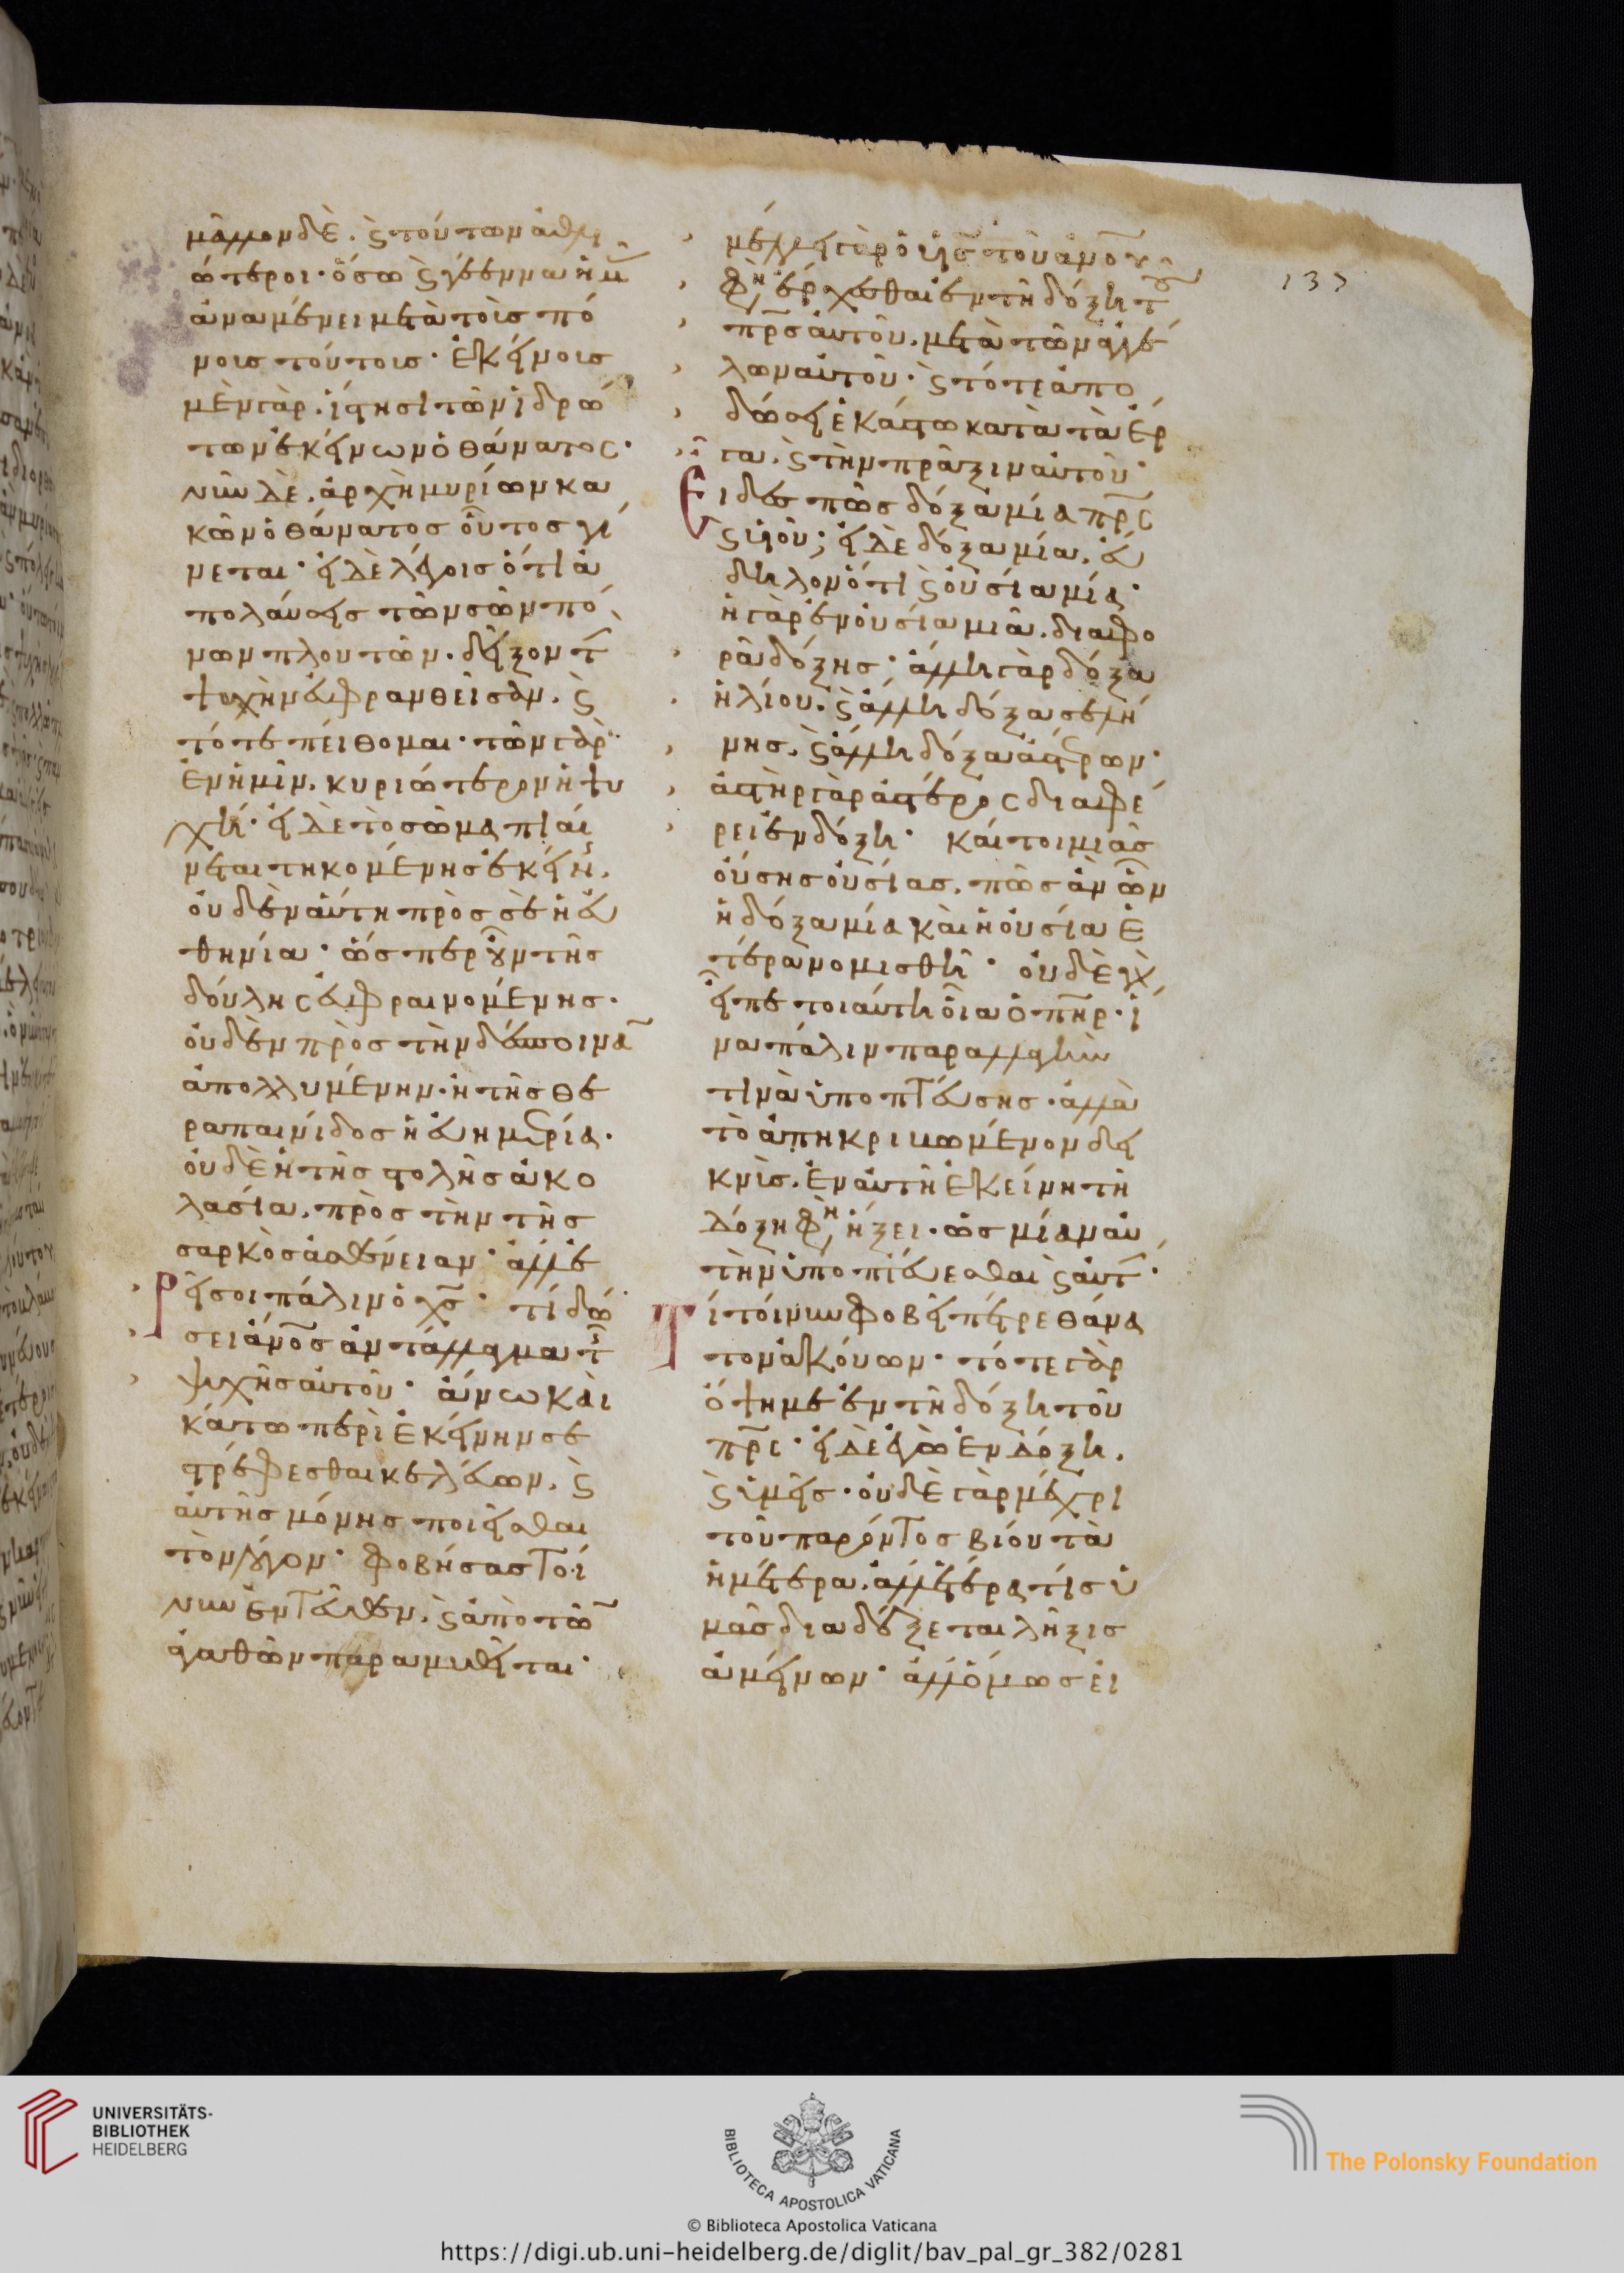 μᾶλλον δὲ. ϛ τούτων ἀθλι
ώτεροι· ὅσω ϛ γέεννα ἡμ̃
ἀναμένει μετὰ τοὺς πό
νους τούτους· ἐκείνοις
μὲν γὰρ. ἵστησι τῶν ἱδρώ
των ἐκείνων ὁ θάνατος·
νῦν δὲ. ἀρχὴ μυρίων κα
κῶν ὁ θάνατος οὗτος γί
νεται· εἰ δὲ λέγοις ὅτι ἀ
πολαύεις τῶν σῶν πό
νων πλουτῶν. δεῖξον τ̃
ψυχὴν εὐφρανθεῖσαν. ϛ
τότε πείθομαι· τῶν γὰρ
ἐν ἡμῖν. κυριώτερον ἡ ψυ
χή· εἰ δὲ τὸ σῶμα πιαί
νεται τηκομένης ἐκείν(ης).
οὐδὲν αὕτη πρὸς σὲ ἡ εὐ
θηνία· ὥσπερ οὖν τῆς
δούλης εὐφραινομένης.
οὐδὲν πρὸς τὴν δέσποινα̃
ἀπολλυμένην. ἡ τῆς θε
ραπαινίδος ἡ εὐημερία.
οὐδὲ ἡ τῆς στολῆς ἀκο
λασία. πρὸς τὴν τῆς
σαρκὸς ἀσθένειαν· ἀλλ' ἐ
ρεῖ σοι πάλιν ὁ χς̃· τί δώ
σει ἄνο̃ς ἀντάλλαγμα τ̃
ψυχῆς αὐτοῦ· ἄνω καὶ
κάτω περὶ ἐκείνην σε
στρέφεσθαι κελεύων. ϛ
αὐτῆς μόνης ποιεῖσθαι
τὸν λόγον· φοβήσας τοί
νυν ἐντεῦθεν. ϛ ἀπὸ τῶ̃
ἀγαθῶν παραμυθεῖται·
μέλλει γὰρ ὁ υἱς̃ τοῦ ἀνο̃υ
φη, ἔρχεσθαι ἐν τῆ δόξη τοῦ
πρ̃ς αὐτοῦ. μετὰ τῶν ἀγγέ
λων αὐτοῦ· ϛ τότε ἀπο
δώσει ἑκάστω κατὰ τὰ ἔρ
γα. ϛ τὴν πρᾶξιν αὐτοῦ·
Εἶδες πῶς δόξα μία πρ̃ς
ϛ υἱοῦ; εἰ δὲ δόξα μία. εὔ
δηλον ὅτι ϛ οὐσία μία·
εἰ γὰρ ἐν οὐσία μιᾶ. διαφο
ρὰ δόξης· ἄλλη γὰρ δόξα
ἡλίου. ϛ ἄλλη δόξα σελή
νης. ϛ ἄλλη δόξα ἀστέρων·
ἀστὴρ γὰρ ἀστέρος διαφέ
ρει ἐν δόξη· καίτοι μιᾶς
οὔσης οὐσίας. πῶς ἂν ὧν
ἡ δόξα μία καὶ ἡ οὐσία ἑ
τέρα νομισθῆ· οὐδὲ γὰρ
εἶπε τοιαύτη οἵα ὁ πη̃ρ. ἵ
να πάλιν παραλλαγήν
τινα ὑποπτεύσης. ἀλλὰ
τὸ ἀπηκριβωμένον δει
κνὺς. ἐν αὐτῆ ἐκείνη τῆ
δόξη φη, ἥξει. ὡς μίαν αὐ
τὴν ὑποπτεύεσθαι ϛ αὐτ̃·
Τί τοίνυν φοβεῖ πέτρε θάνα
τον ἀκούων· τότε γὰρ
ὄψη με ἐν τῆ δόξη τοῦ
πρ̃ς· εἰ δὲ ἐγὼ ἐν δόξη.
ϛ ὑμεῖς. οὐδὲ γὰρ μέχρι
τοῦ παρόντος βίου τὰ
ἡμέτερα. ἀλλ' ἑτέρα τίς ὑ
μᾶς διαδέξεται λῆξις
ἀμείνων· ἀλλ' ὅμως εἰ
137
UNIVERSITÄTS-
BIBLIOTHEK
HEIDELBERG
BIBLIOTECA APOSTOLICA VATICANA
The Polonsky Foundation
© Biblioteca Apostolica Vaticana
https://digi.ub.uni-heidelberg.de/diglit/bav_pal_gr_382/0281